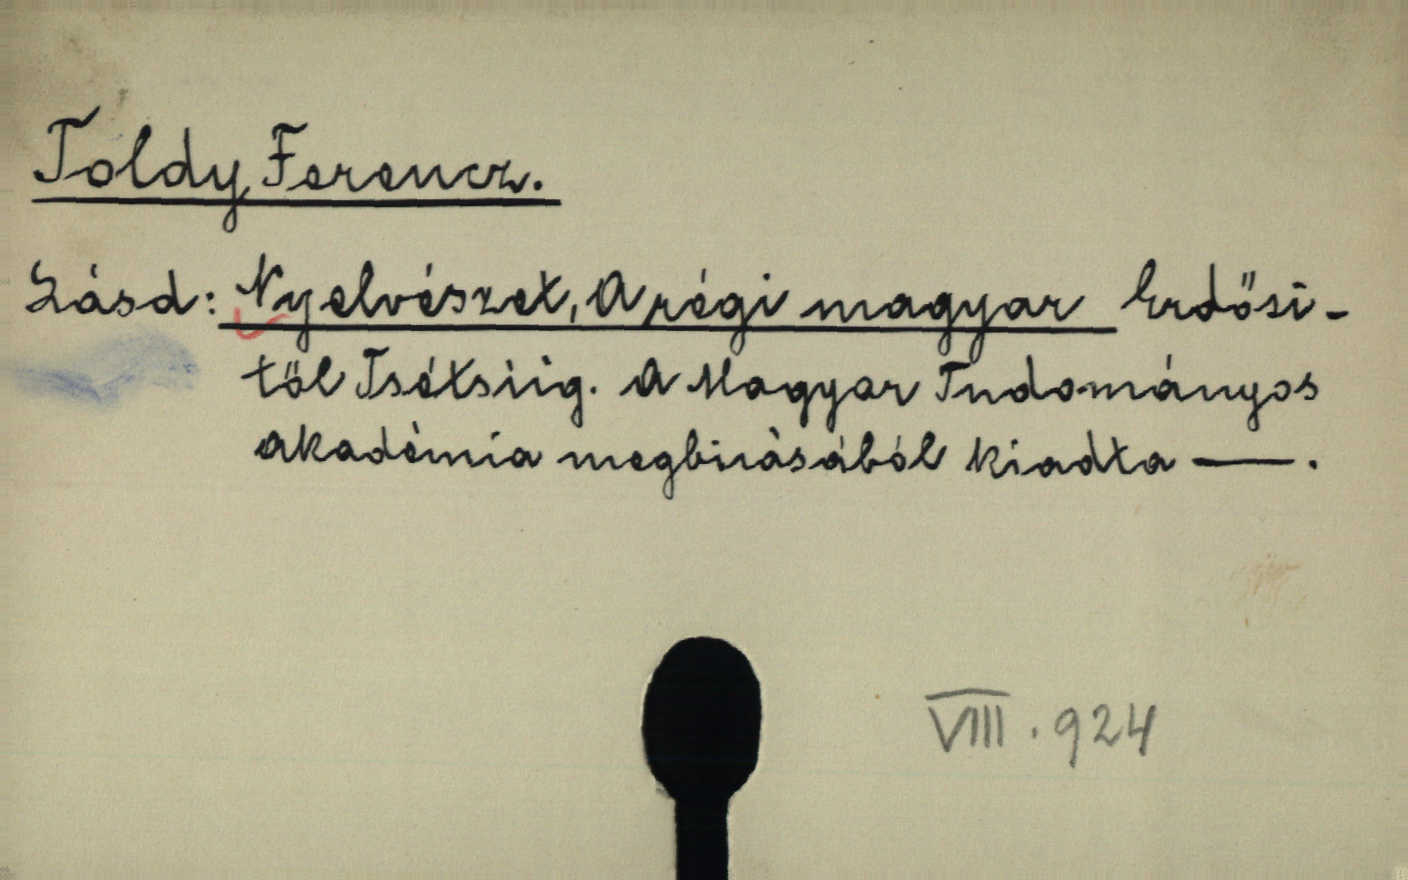 Toldy Ferencz.
Lásd: Nyelvészet, A régi magyar Erdősi-
től Tsétsiig. A Magyar Tudományos
Akadémia megbízásából kiadta —.
VIII. 924